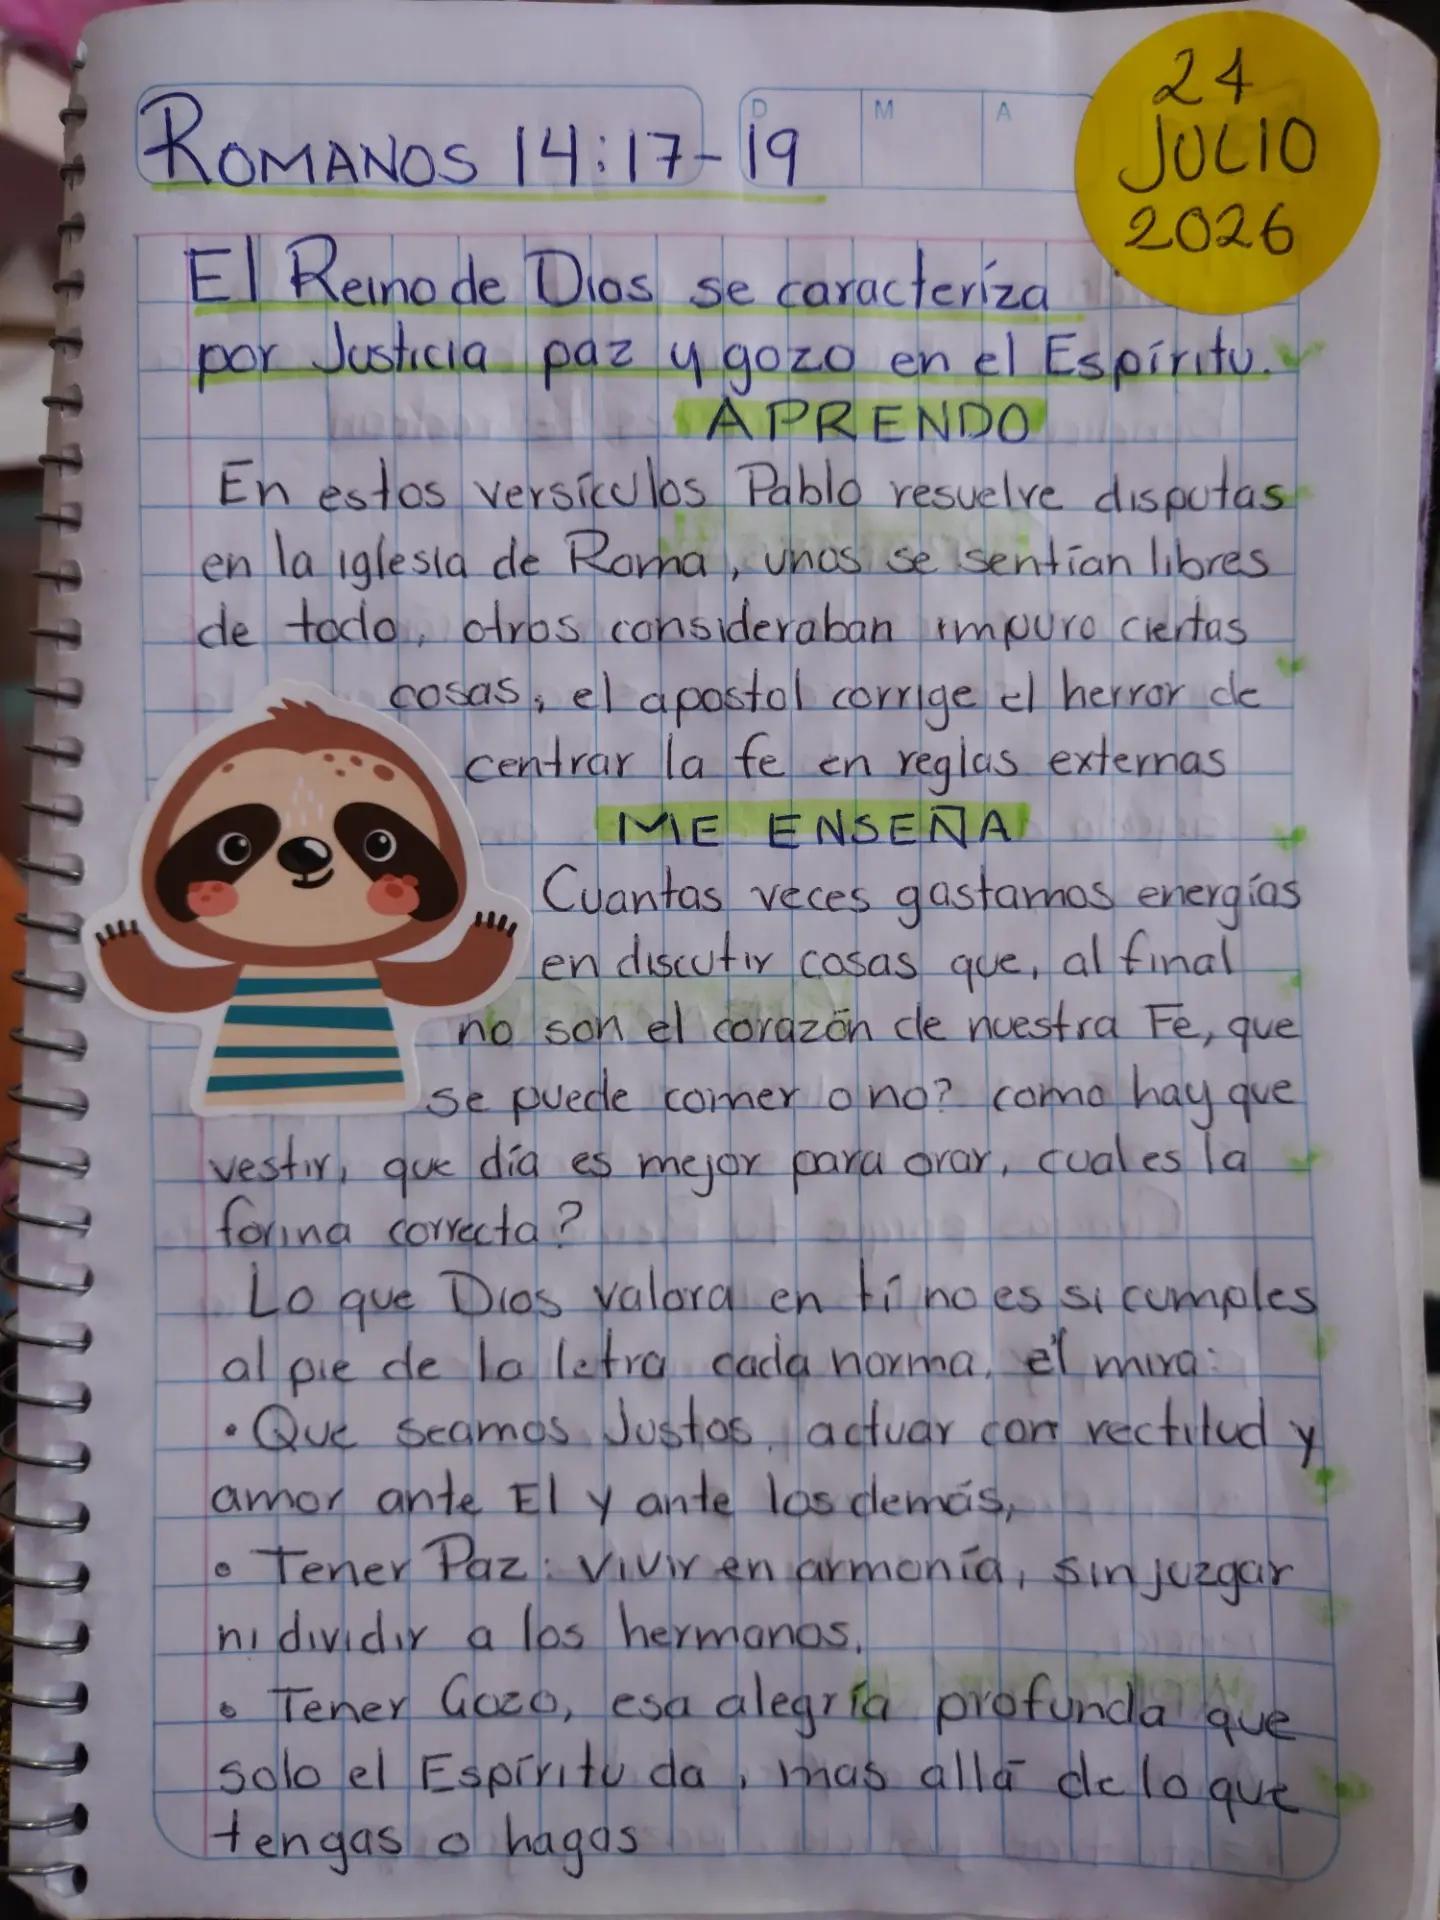 ROMANOS 14:17-19
D M A
24
JULIO
2026
El Reino de Dios se caracteríza
por Justicia paz y gozo en el Espíritu.
APRENDO
En estos versículos Pablo resuelve disputas
en la iglesia de Roma, unos se sentían libres
de todo, otros consideraban impuro ciertas
cosas, el apostol corrige el herror de
centrar la fe en reglas externas
ME ENSEÑA
Cuantas veces gastamos energías
en discutir cosas que, al final
no son el corazón de nuestra Fe, que
se puede comer o no? como hay que
vestir, que día es mejor para orar, cual es la
forma correcta?
Lo que Dios valora en tí no es si cumples
al pie de la letra cada norma, él mira:
• Que seamos Justos, actuar con rectitud y
amor ante El y ante los demás,
• Tener Paz: vivir en armonía, sin juzgar
ni dividir a los hermanos.
• Tener Gozo, esa alegría profunda que
solo el Espíritu da, mas allá de lo que
tengas o hagas